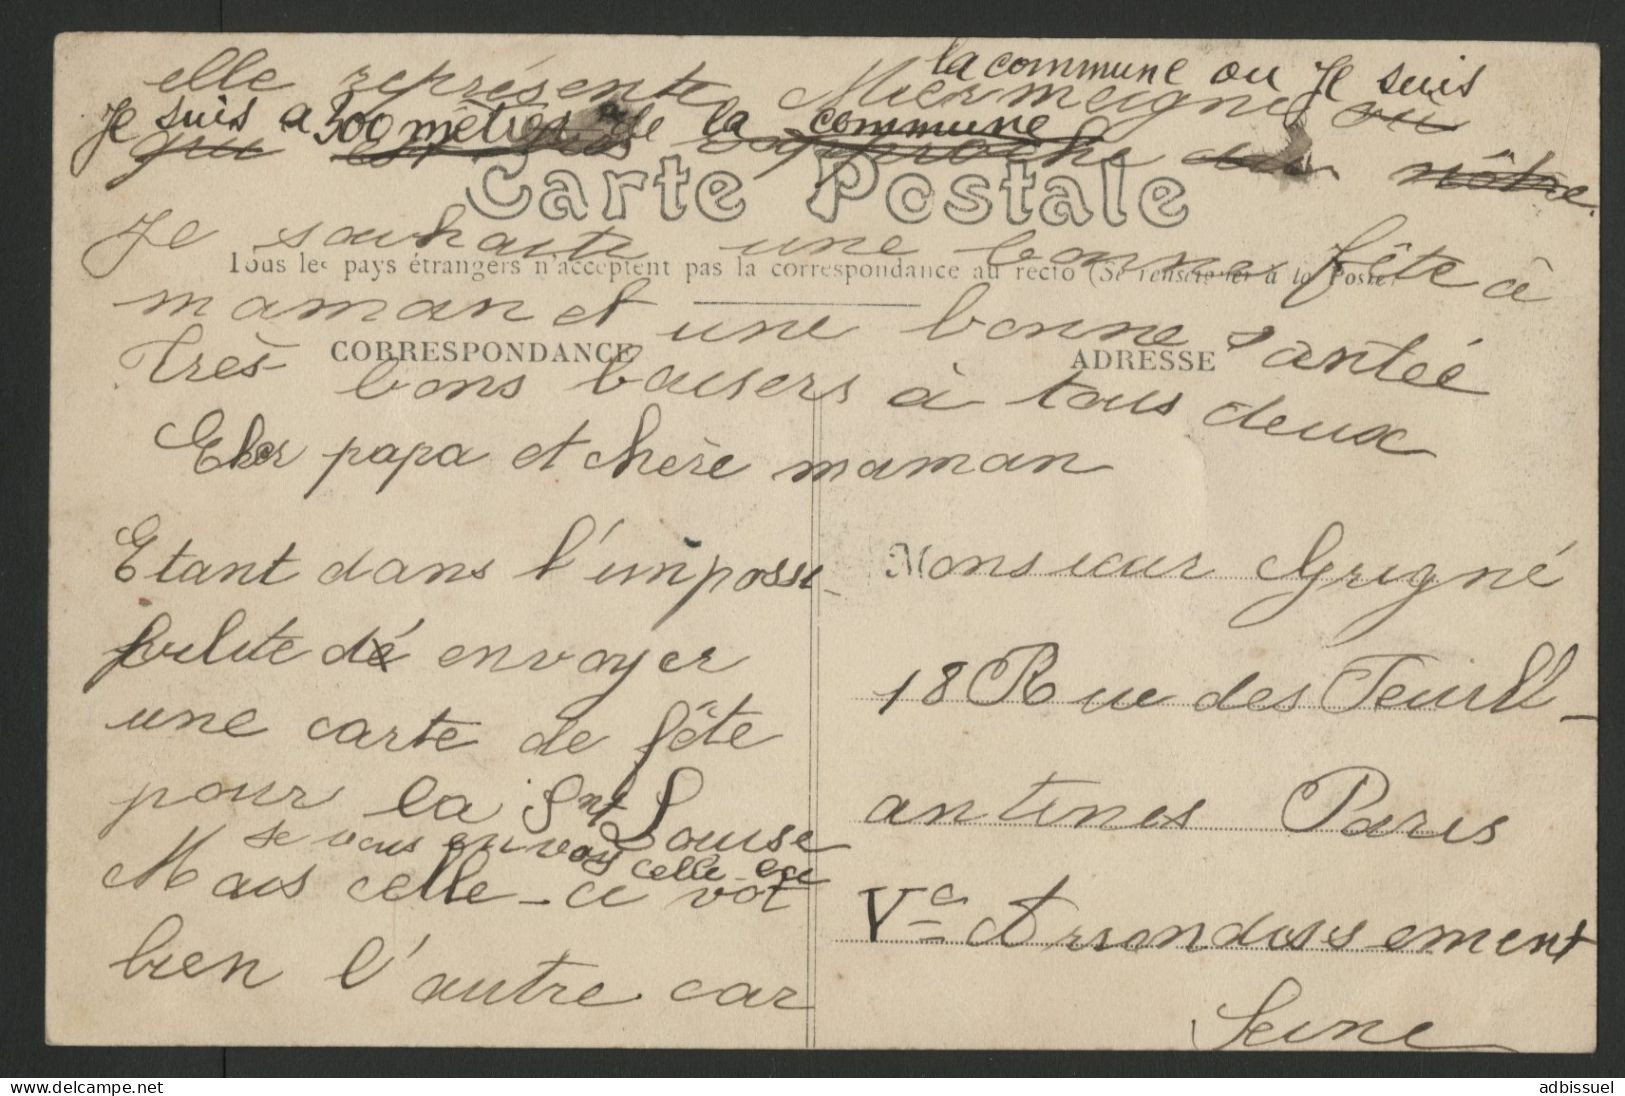 la commune ou Je suis
elle représente Miermeigne ou
Je suis a 300 mètres de la commune
qui est approche de nôtre
Carte Postale
Je souhaite une bonne fête à
Tous les pays étrangers n'acceptent pas la correspondance au recto (Se renseigner à la Poste)
maman et une bonne santée
CORRESPONDANCE
ADRESSE
Très bons baisers à tous deux
Cher papa et chère maman
Etant dans l'impossi-
bilite de envoyer
une carte de fête
pour la Snt Louise
Je vous envoy celle-ci
Mais celle-ci vot
bien l'autre car
Monsieur Grigné
18 Rue des Feuill-
antines Paris
Ve Arrondissement
Seine
adbissuel